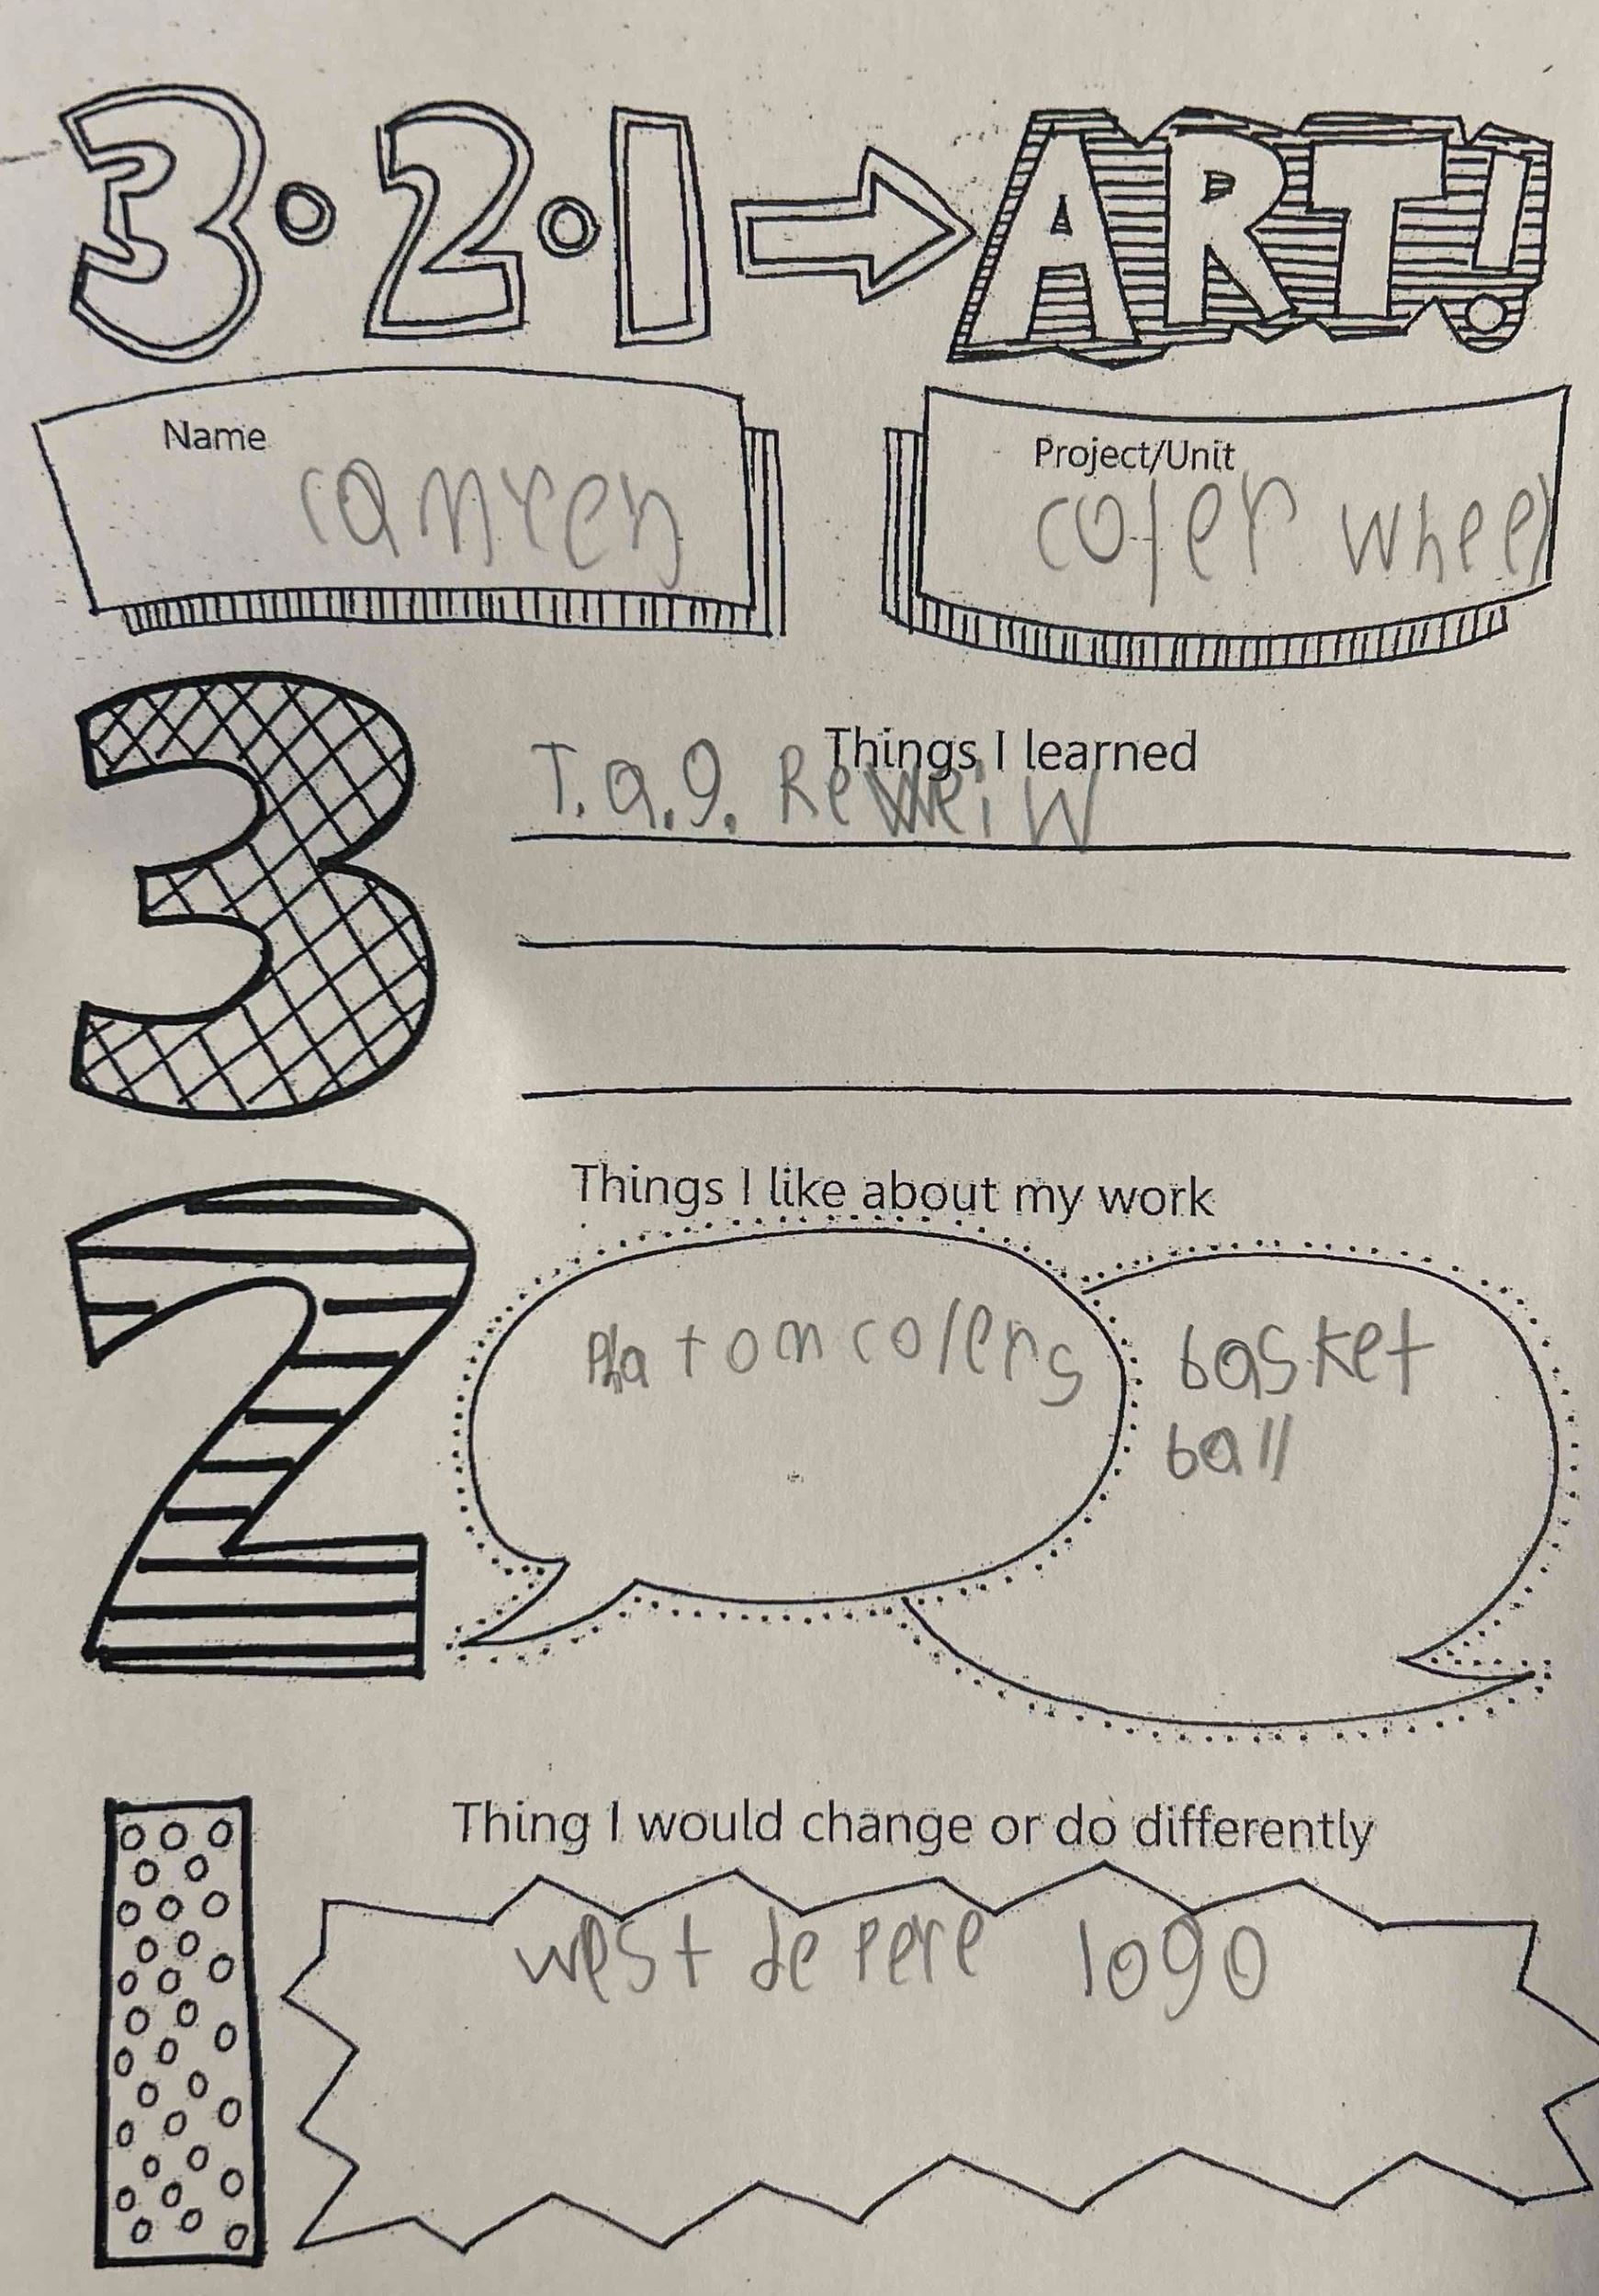 3·2·1→ART!
Name
camren
Project/Unit
coler wheel
3
Things I learned
T.a.g. Reweiw
2
Things I like about my work
colers
basket
ball
1
Thing I would change or do differently
west de pere logo